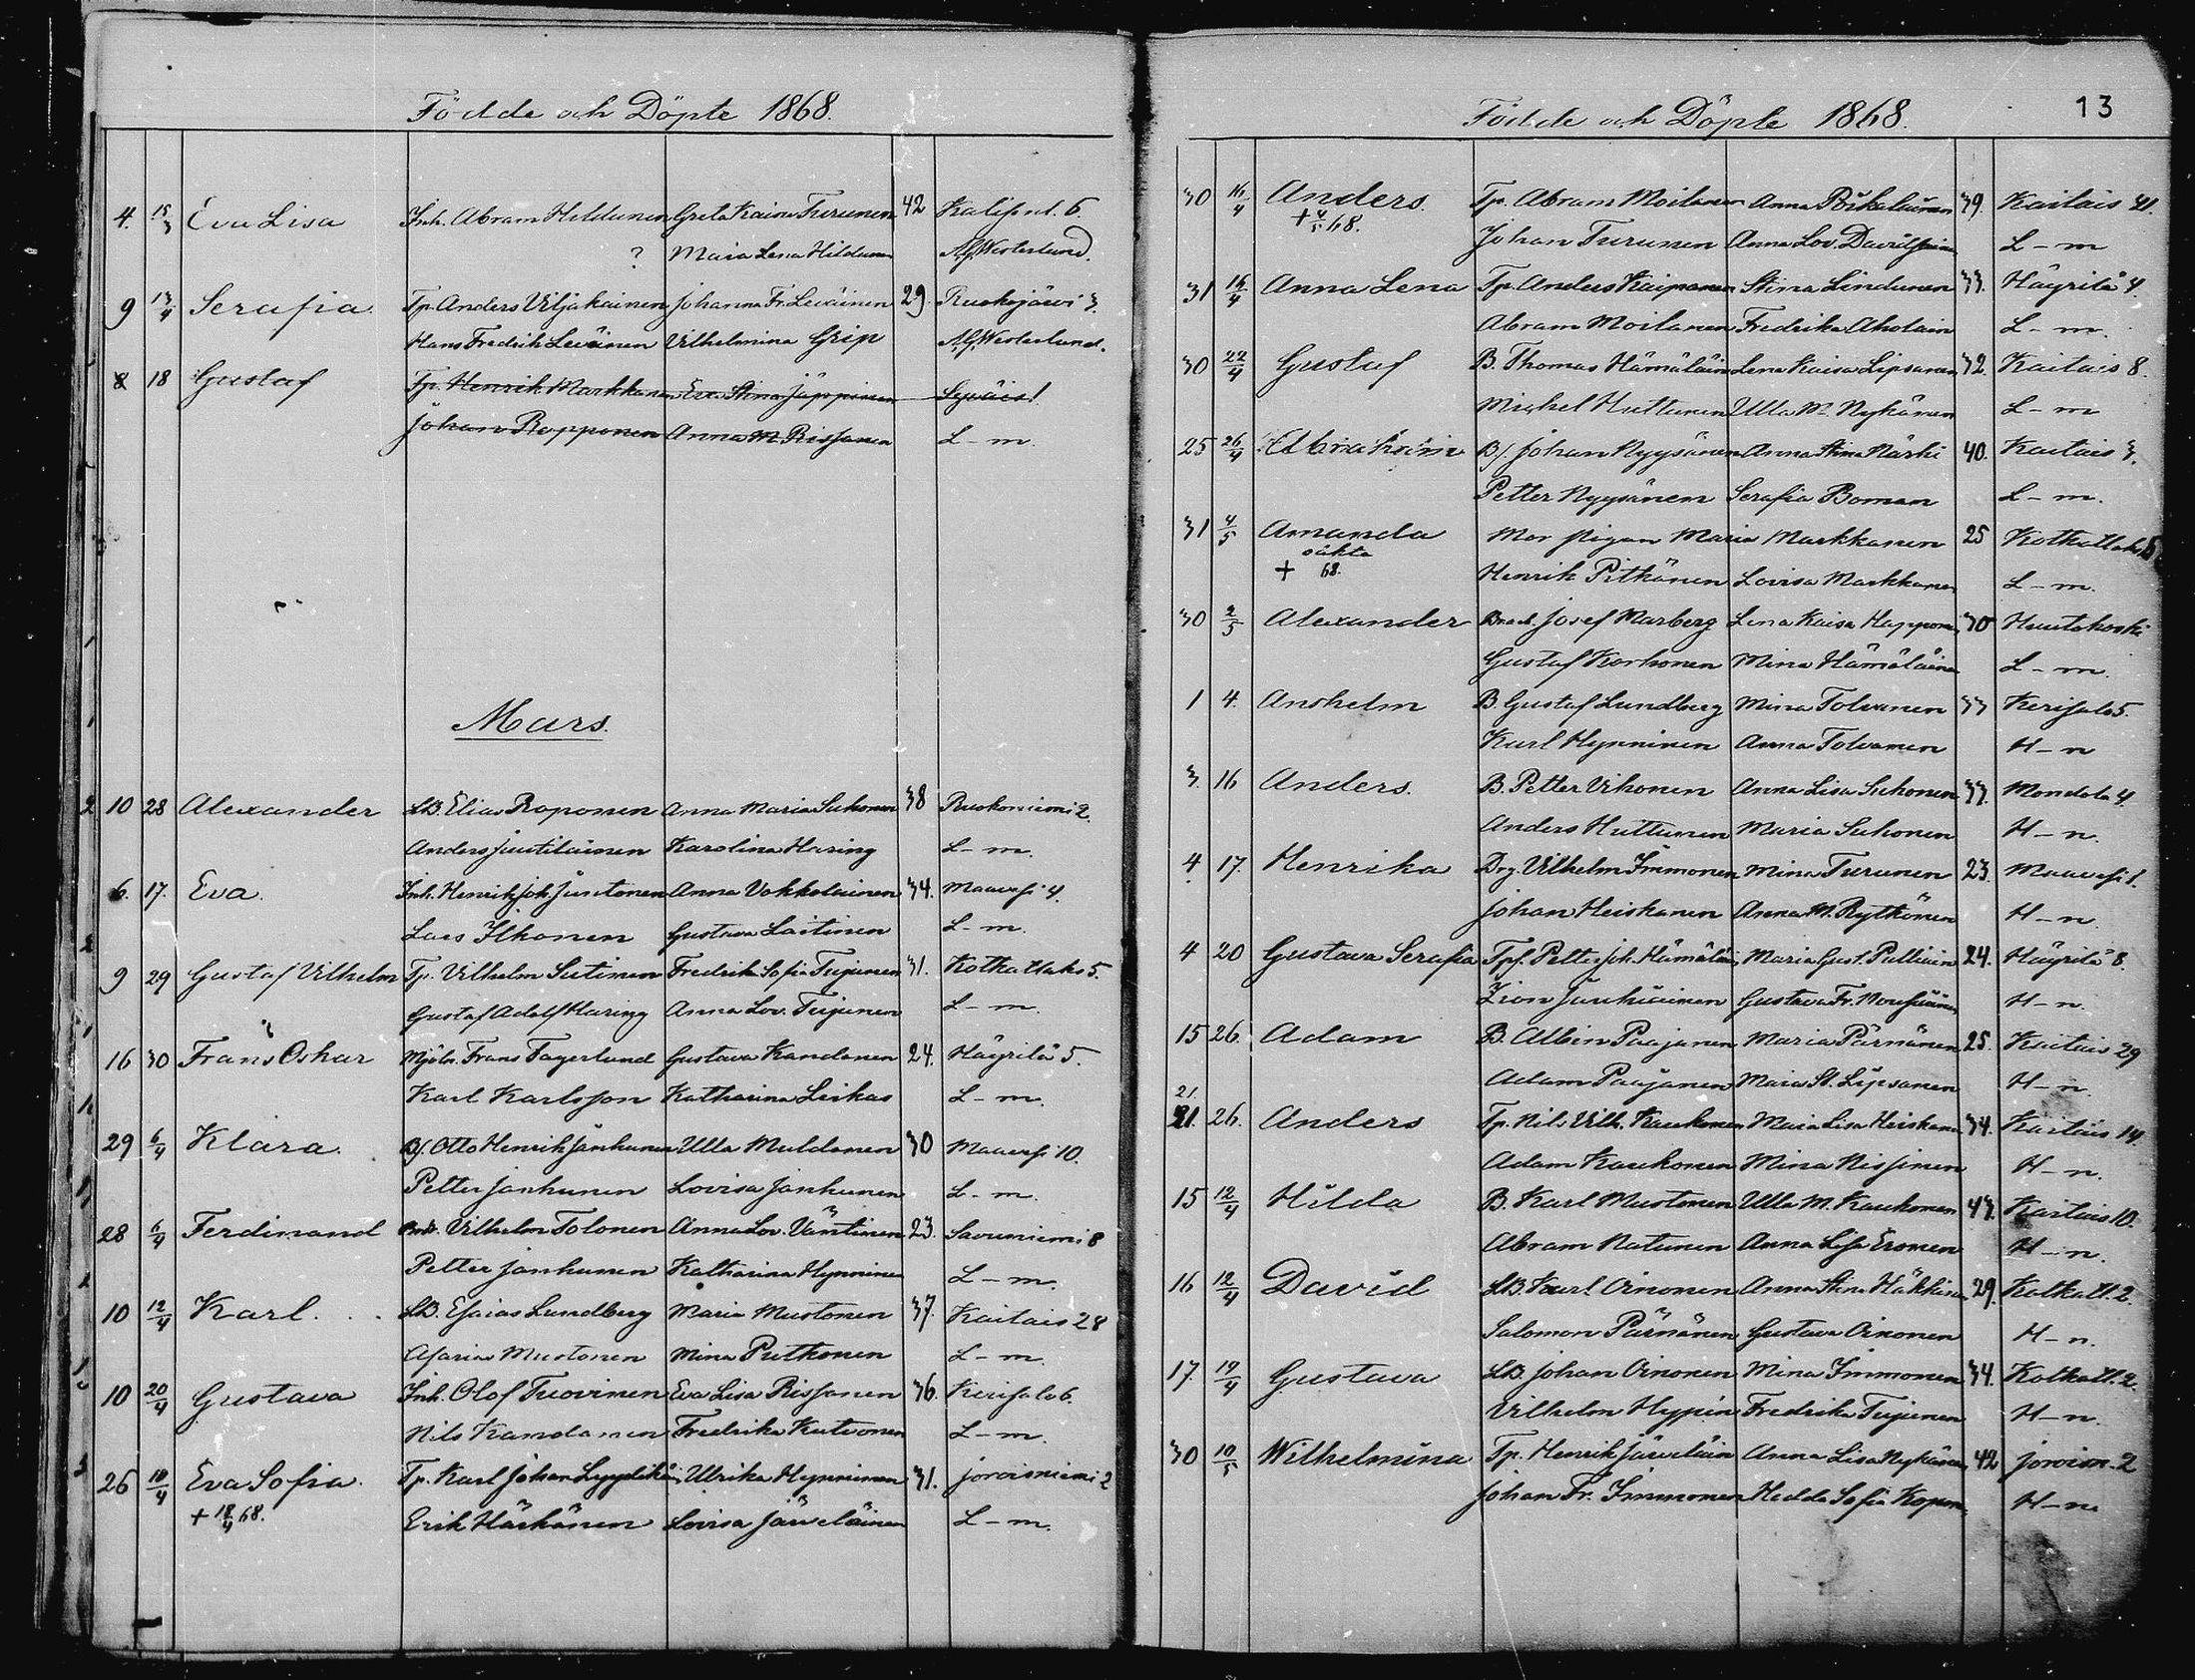 Födde och Döpte 1868.
4. 15/3 Eva Lisa Inh. Abram Hildunen Greta Kaisa Turunen 42 Kalifsnl. 6.
? Maia Lena Hildunen A.G. Westerlund.
9 13/4 Serafia. Tp. Anders Viljakainen Johanna Fr. Leväinen 29. Ruokojärvi 3.
Hans Fredrik Leväinen Vilhelmina Grip A.G. Westerlund.
8 18 Gustaf Tp. Henrik Markkanen Eva Stina Jäppinen
Johan Ropponen Anna M. Rissanen L-m.
Mars.
10 28 Alexander LB. Elias Roponen Anna Maria Suhonen 38 Ruokoniemi 2.
Anders Juutilainen Karolina Haring L-m.
6. 17. Eva. Inh. Henrik Joh. Juntonen Anna Vokkolainen 34. Maavesi 4.
Lars Ikonen Gustava Laitinen L-m.
9 29 Gustaf Vilhelm Tp. Vilhelm Sutinen Fredrik Sofia Teijunen 31. Kotkatlaks 5.
Gustaf Adolf Haring Anna Lov. Teijunen L-m.
16 30 Frans Oskar Mjöln. Frans Fagerlund Gustava Kandanen 24. Häyrilä 5.
Karl Karlsson Katharina Leikas L-m.
29 6/4 Klara. Bf. Otto Henrik Janhunen Ulla Muldonen 30 Maavesi 10.
Petter Janhunen Lovisa Janhunen L-m.
28 6/4 Ferdinand Vilhelm Tolonen Anna Lov. Väntinen 23. Savuniemi 8
Petter Janhunen Katharina Hynninen L-m.
10 12/4 Karl. LB. Esaias Lundberg Maria Mustonen 37. Kaitais 28
Asarias Mustonen Mina Putkonen L-m.
10 20/4 Gustava Inh. Olof Tuovinen Eva Lisa Rissanen 36. Kerisalo 6.
Nils Kandanen Fredrika Kutvonen L-m.
26 10/4 Eva Sofia. Tp. Karl Johan Lyydikäi. Ulrika Hynninen 31. Joroisniemi 2
+ 18/4 68. Erik Härkönen Lovisa Järveläinen L-m.
Födde och Döpte 1868. 13
30 16/4 Anders. Tp. Abram Moilanen Anna Pöikäläinen 39. Kaitais 41.
+ 4/5 68. Johan Turunen Anna Lov. Davidsson L-m
31 14/4 Anna Lena Tp. Anders Kaipanen Stina Lindunen 33. Häyrilä 4.
Abram Moilanen Fredrika Aholain L-m.
30 22/4 Gustaf B. Thomas Hämäläin Lena Kaisa Lipsanen 32. Kaitais 8.
Michel Huttunen Ulla M. Nykänen L-m
25 26/4 Bf. Johan Nyyssönen Anna Stina Närhi 40. Kaitais 3.
Petter Nyyssönen Serafia Boman L-m.
31 4/5 Amanda Mor pigan Maria Markkanen 25 Kotkatlaks
oäkta
+ 68. Henrik Pitkänen Lovisa Markkanen L-m.
30 2/5 Alexander Josef Marberg Lena Kaisa Happonen 30 Huutokoski
Gustaf Korhonen Mina Hämäläinen L-m.
1 4. Anshelm B. Gustaf Lundberg Mina Tolvanen 33 Kerisalo 5.
Karl Hynninen Anna Tolvanen H-n
3. 16 Anders. B. Petter Vihonen Anna Lisa Suhonen 33. Mondola 4.
Anders Huttunen Maria Suhonen H-n.
4. 17. Henrika Drg. Vilhelm Immonen Mina Turunen 23. Maavesi 1.
Johan Heiskanen Anna M. Rytkönen H-n.
4 20 Gustava Serafia Tpf. Petter Joh. Hämäläin. Maria Gust. Pulliain 24. Häyrilä 8.
Zion Jauhiainen Gustava Fr. H-n.
15 26. Adam B. Albin Paajanen Maria Pärnänen 25. Kaitais 29
Adam Paajanen Maria St. Lipsanen H-n.
21.
21. 26. Anders Tp. Nils Vilh. Kauhonen Maia Lisa Heiskanen 34. Kaitais 14.
Adam Kaukonen Mina Nissinen H-n.
15 12/4 Hilda B. Karl Mustonen Ulla M. Kaukonen 43. Kaitais 10.
Abram Natunen Anna Lisa Eronen H-n.
16 12/4 David LB. Karl Oinonen Anna Stina Häkkinen 29. Kotkatl. 2.
Salomon Pärnänen Gustava Oinonen H-n.
17. 19/4 Gustava LB. Johan Oinonen Mina Immonen 34. Kotkatl. 2.
Vilhelm Hypén Fredrika Teijunen H-n.
30 10/5 Wilhelmina Tp. Henrik Järveläin Anna Lisa Nykänen 42 Joroisn. 2
Johan Fr. Immonen Hedda Sofia Koponen H-n.